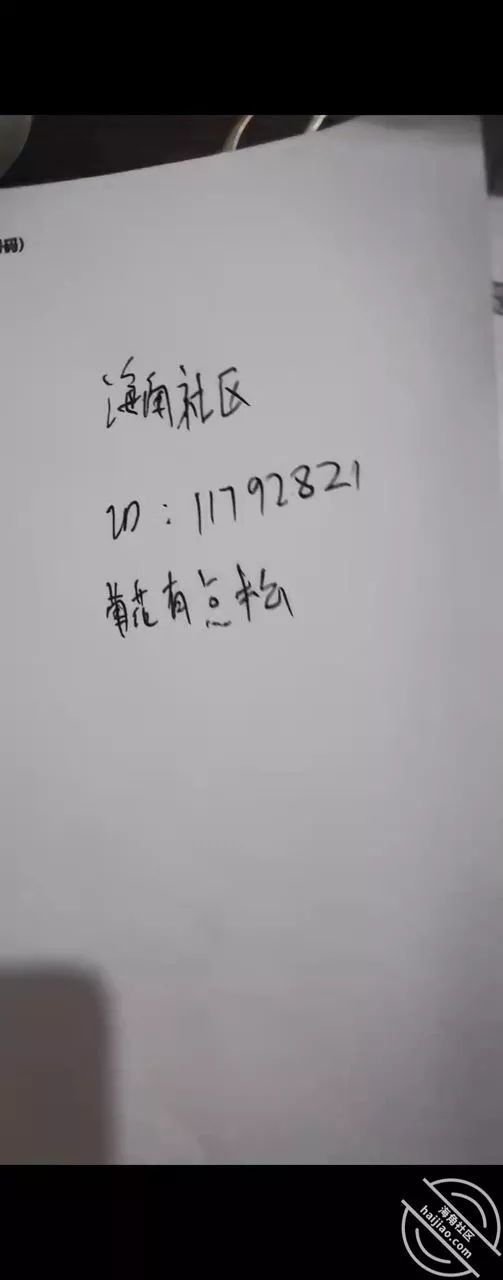 码）
海角社区
ID：11792821
菊花有点松
海角社区
haijiao.com